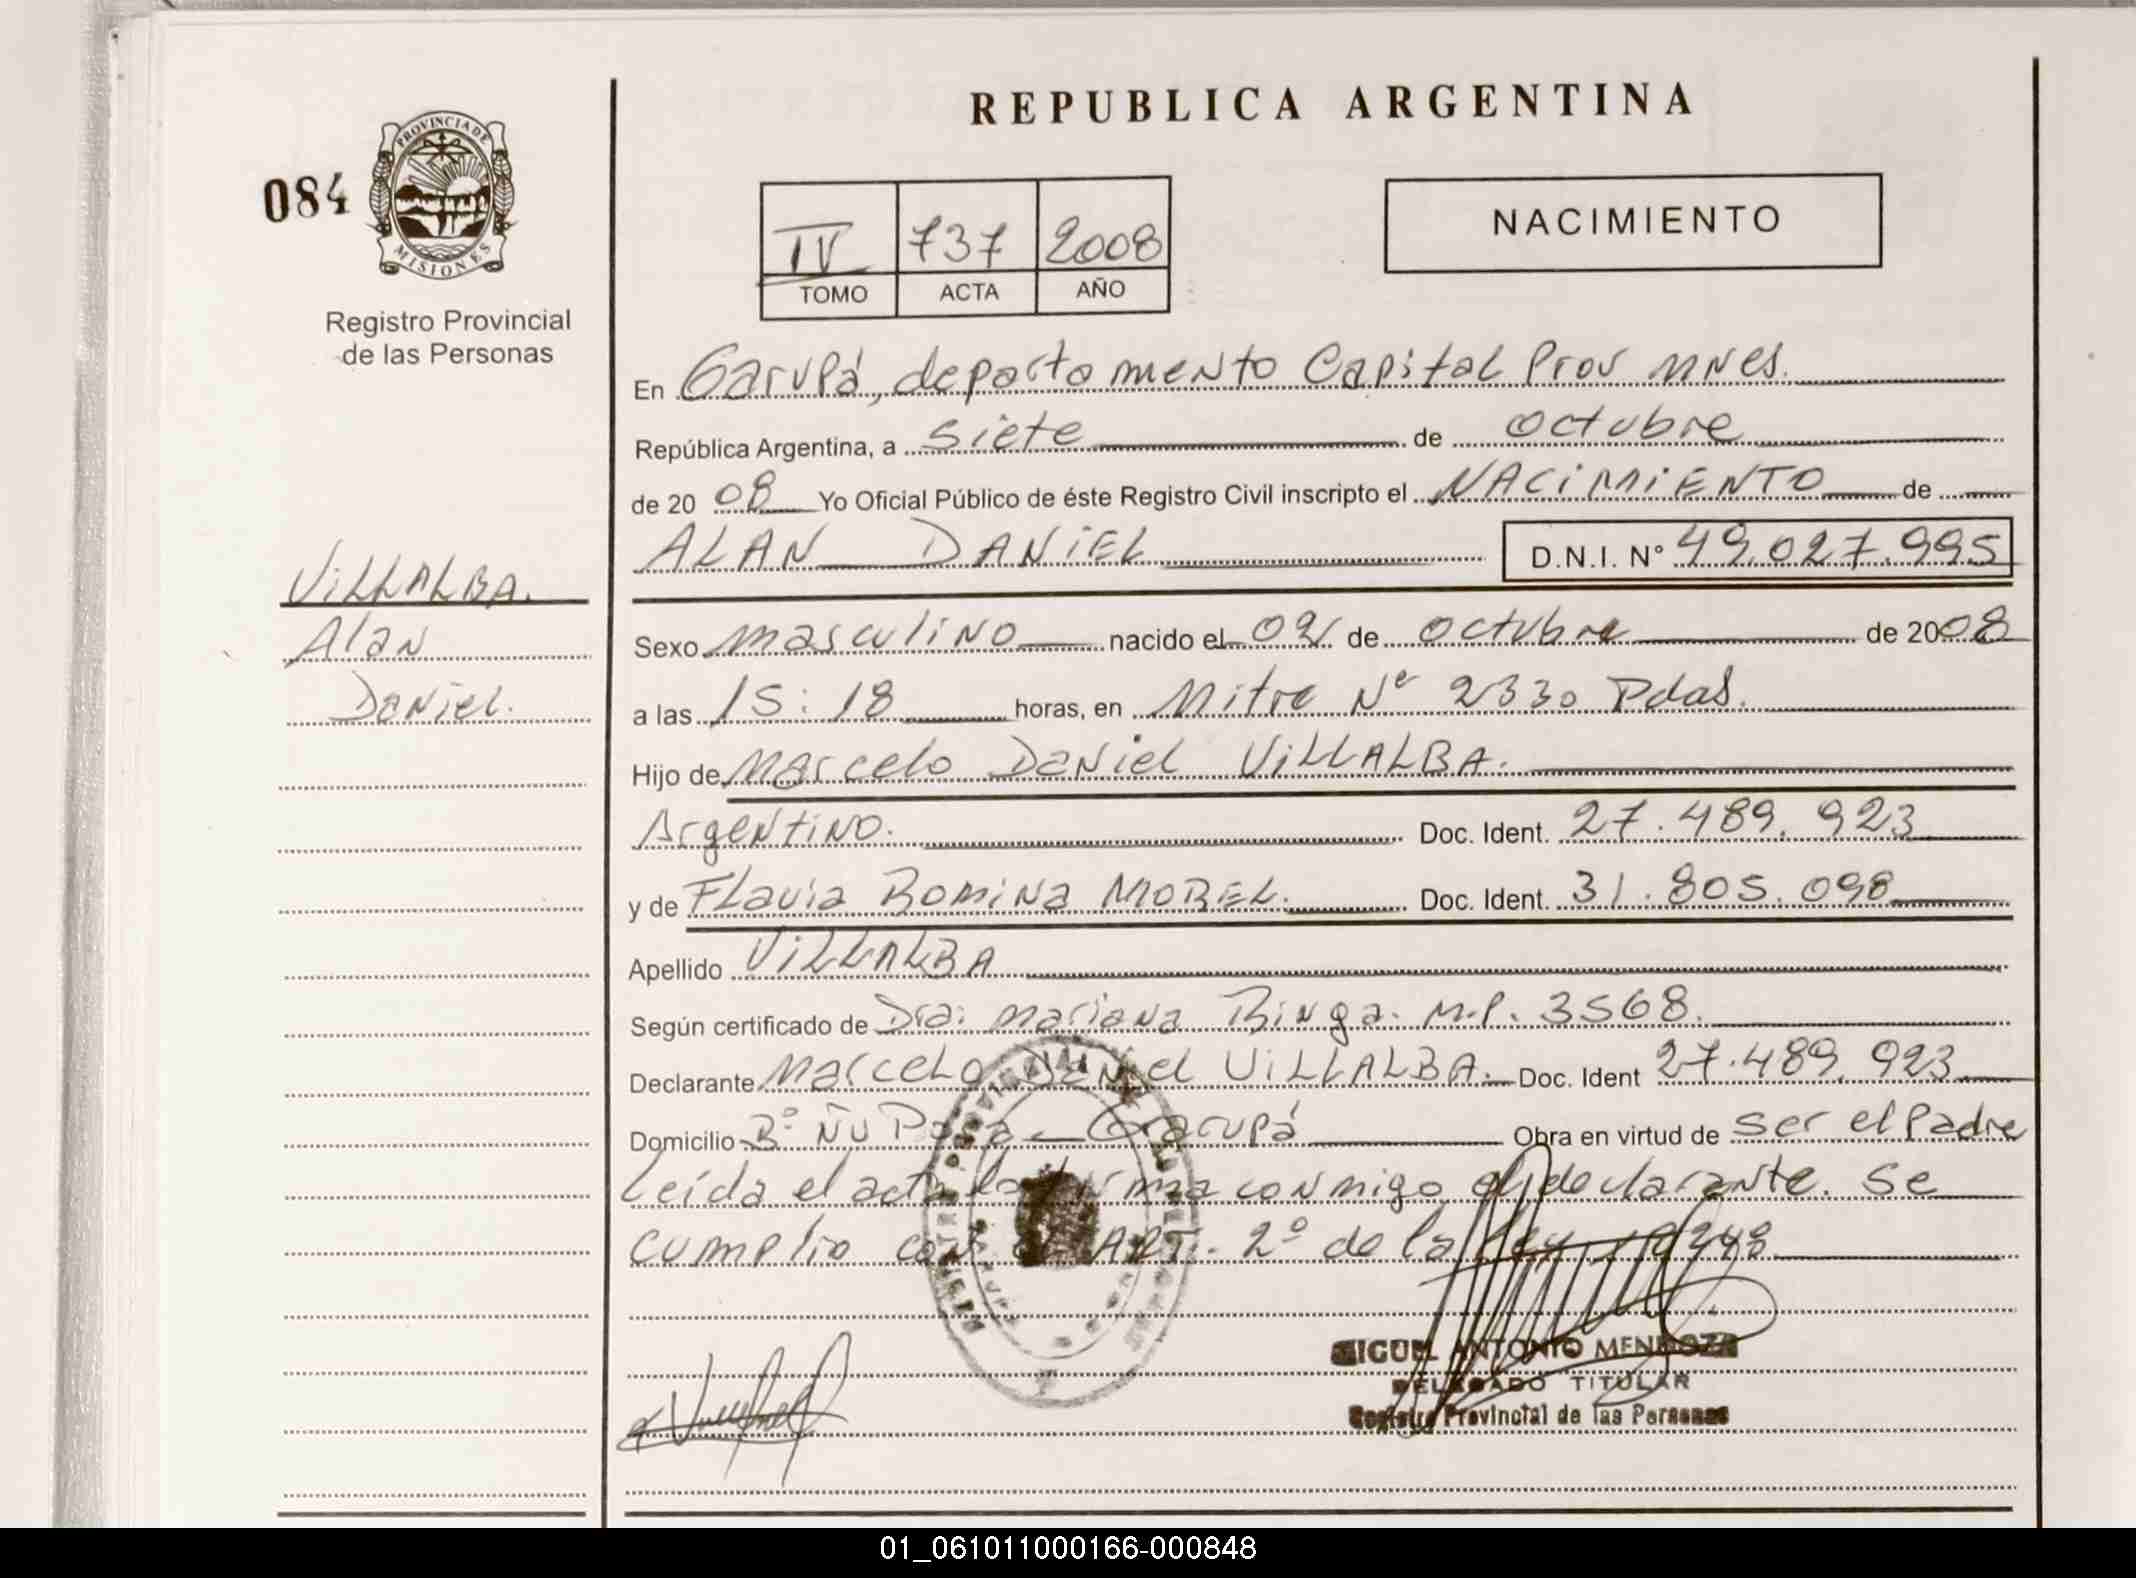 REPUBLICA ARGENTINA
084
PROVINCIA DE
MISIONES
Registro Provincial
de las Personas
IV 737 2008
TOMO ACTA AÑO
NACIMIENTO
En Garupá, departamento Capital Prov mnes.
República Argentina, a siete de octubre
de 2008 Yo Oficial Público de éste Registro Civil inscripto el NACIMIENTO de
ALAN DANIEL D.N.I. N° 49.027.995
VILLALBA.
Alan
Daniel.
Sexo masculino nacido el 02 de octubre de 2008
a las 15:18 horas, en Mitre N° 2330 Pdas.
Hijo de Marcelo Daniel VILLALBA.
Argentino. Doc. Ident. 27.489.923
y de Flavia Romina MOREL. Doc. Ident. 31.805.098
Apellido VILLALBA
Según certificado de Dra: Mariana Binga. M.P. 3568.
Declarante Marcelo Daniel VILLALBA. Doc. Ident 27.489.923
Domicilio B° Ñu Porá - Garupá Obra en virtud de ser el Padre
Leída el acta la firma conmigo el declarante. Se
cumplio con el ART. 2° de la Ley
MIGUEL ANTONIO MENDOZA
DELEGADO TITULAR
Registro Provincial de las Personas
01_061011000166-000848